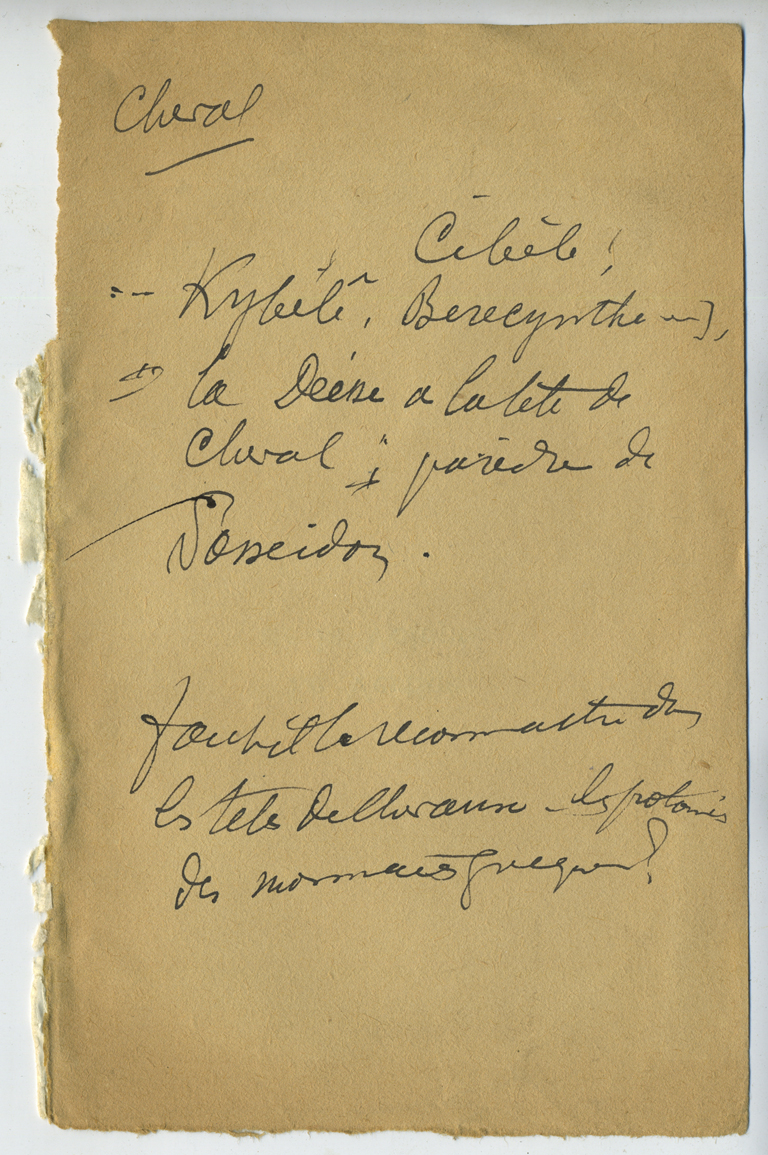 Cheval
Cibèle !
Kybélê, Berecynthe
la Déesse a la tête de
Cheval ; parèdre de
Posseidon .
faut-il le reconnaitre dans
les têtes de chevaux - les potomis
des monnaies grecques ?